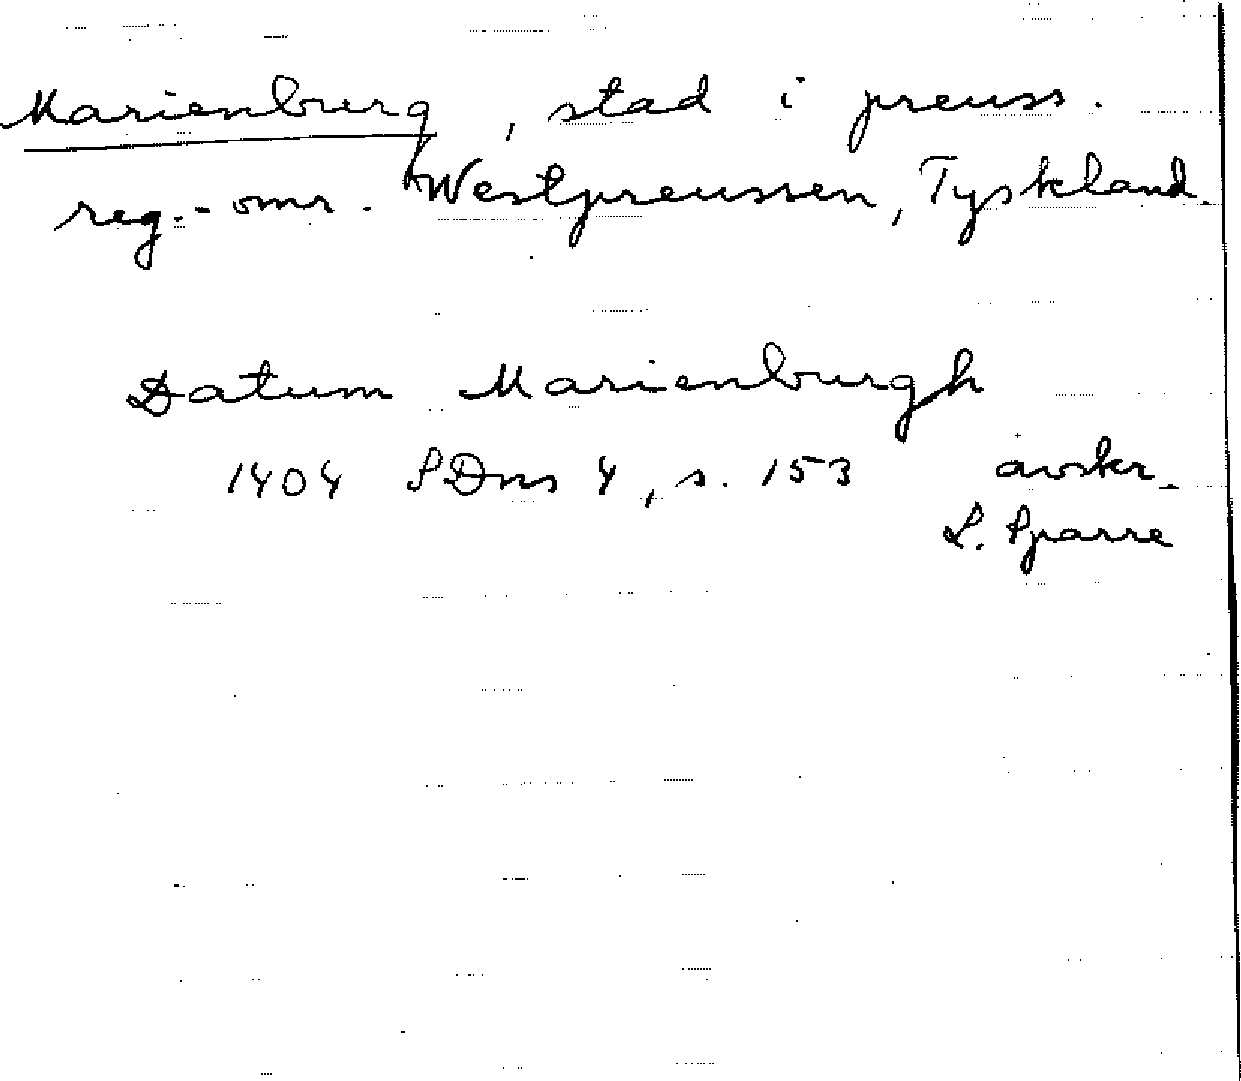 Marienburg, stad i preuss.
reg.-omr. Westpreussen, Tyskland.
Datum Marienburgh
1404 SDns 4, s. 153 avskr.
L. Sparre